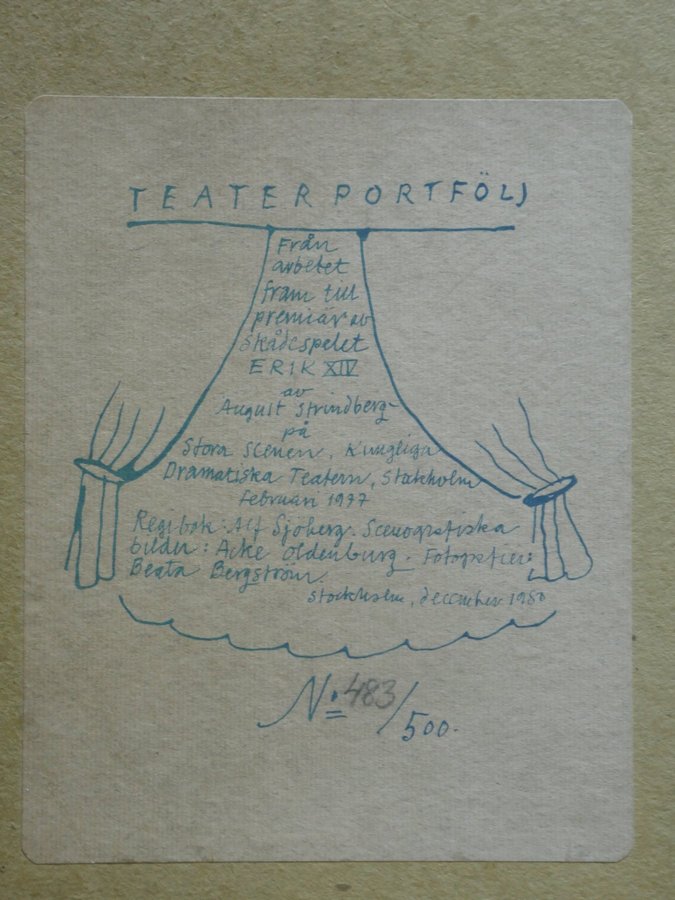 TEATERPORTFÖLJ
Från
arbetet
fram till
premiär av
skådespelet
ERIK XIV
av
August Strindberg
på
Stora Scenen, Kungliga
Dramatiska Teatern, Stockholm
februari 1977
Regibok: Alf Sjöberg. Scenografiska
bilder: Acke Oldenburg. Fotografier:
Beata Bergström.
Stockholm, december 1980
No: 483/500.